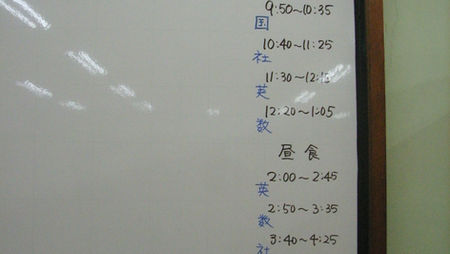 9:50～10:35
国
10:40～11:25
社
11:30～12:15
英
12:20～1:05
数
昼食
2:00～2:45
英
2:50～3:35
数
3:40～4:25
社